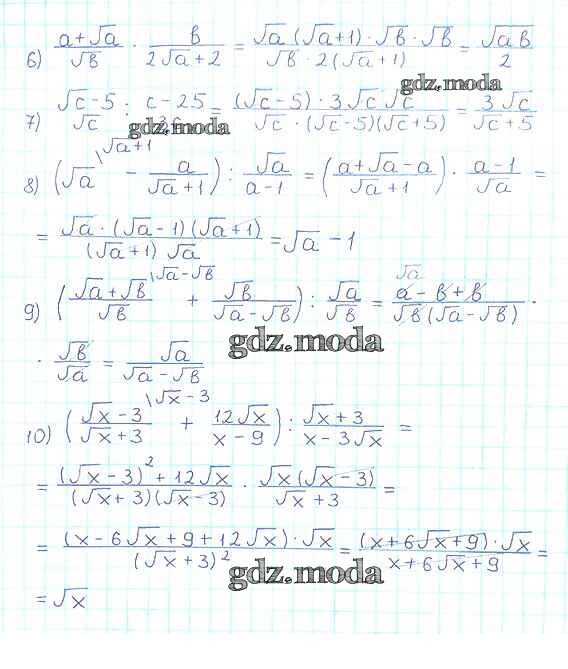 6) (a+√a)/√в · в/(2√a+2) = (√a (√a+1) · √в · √в)/(√в · 2(√a+1)) = √(aв)/2
gdz.moda
7) (√c-5)/√c : (c-25)/3c = ((√c-5) · 3√c √c)/(√c · (√c-5)(√c+5)) = 3√c/(√c+5)
gdz.moda
8) (√a \√a+1 - a/(√a+1)) : √a/(a-1) = ((a+√a-a)/(√a+1)) · (a-1)/√a =
= (√a · (√a-1)(√a+1))/((√a+1) √a) = √a - 1
9) ((√a+√в)/√в \√a-√в + √в/(√a-√в)) : √a/√в = (a-в+в)/(√в(√a-√в)) ·
√a
gdz.moda
· √в/√a = √a/(√a-√в)
10) ((√x-3)/(√x+3) \√x-3 + 12√x/(x-9)) : (√x+3)/(x-3√x) =
= ((√x-3)² + 12√x)/((√x+3)(√x-3)) · √x(√x-3)/(√x+3) =
= ((x-6√x+9+12√x) · √x)/(√x+3)² = ((x+6√x+9) · √x)/(x+6√x+9) =
gdz.moda
= √x